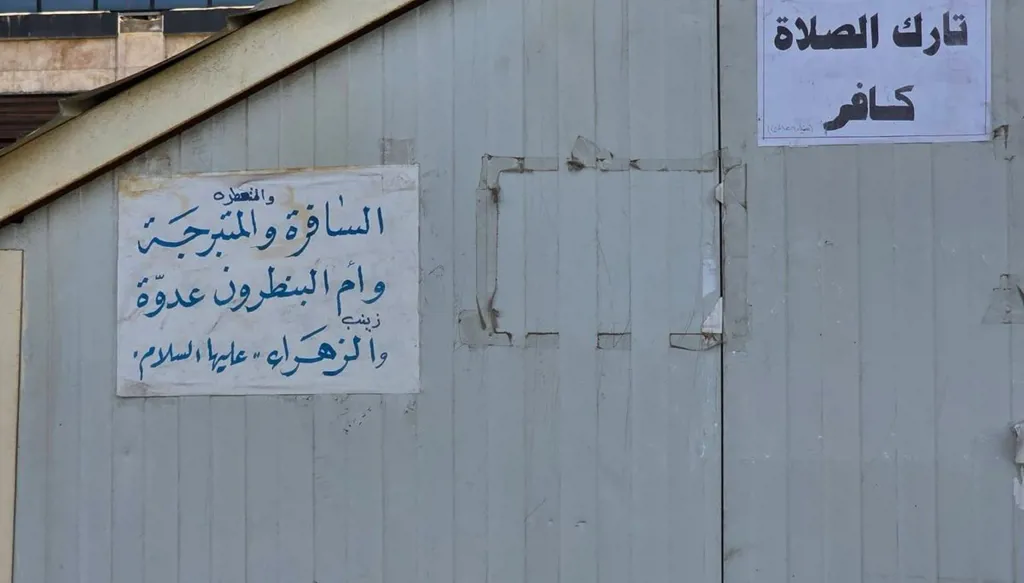 والمتعطره
السافرة والمتبرجَة
وأم البنطرون عدوّة
زينب
والزهراء " عليها السلام .
تارك الصلاة
كافر